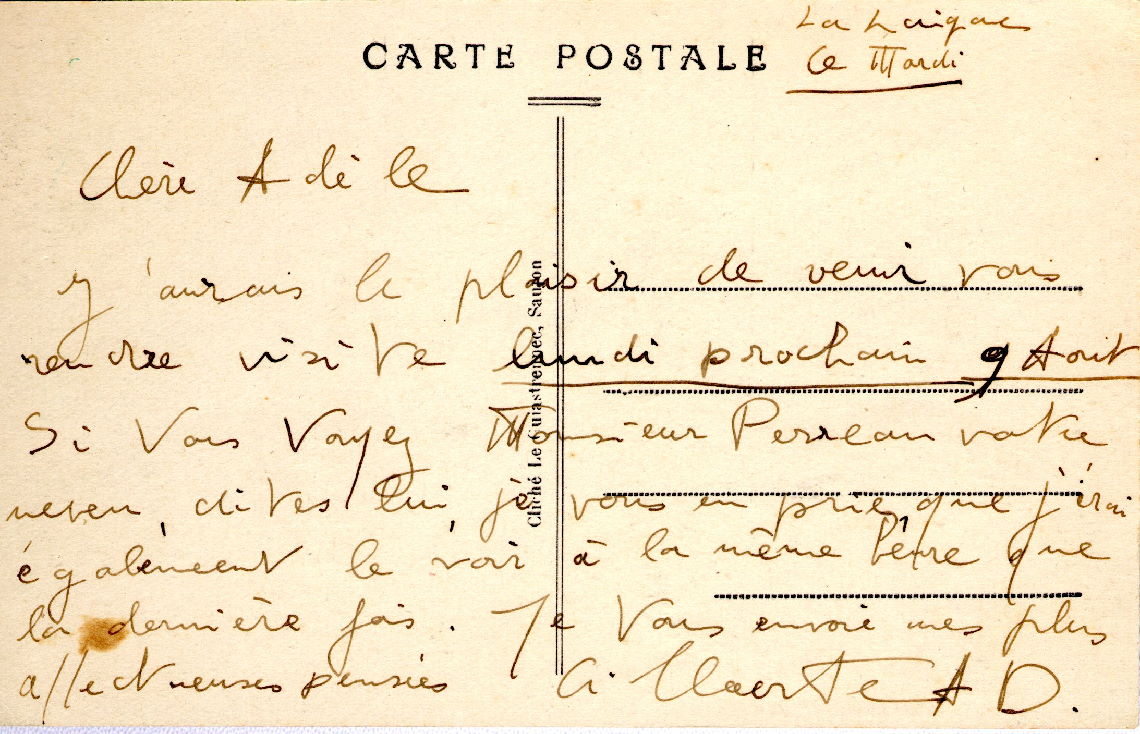 La Laigne
CARTE POSTALE
Ce Mardi
Chère Adèle
J'aurais le plaisir de venir vous
rendre visite lundi prochain 9 Aout
Si Vous Voyez Monsieur Perreau votre
neveu, dites lui, je vous en prie, que j'irai
également le voir à la même heure que
la dernière fois. Je Vous envoie mes plus
affectueuses pensées
A D.
Cliché Le Cuiastrennec, Saujon